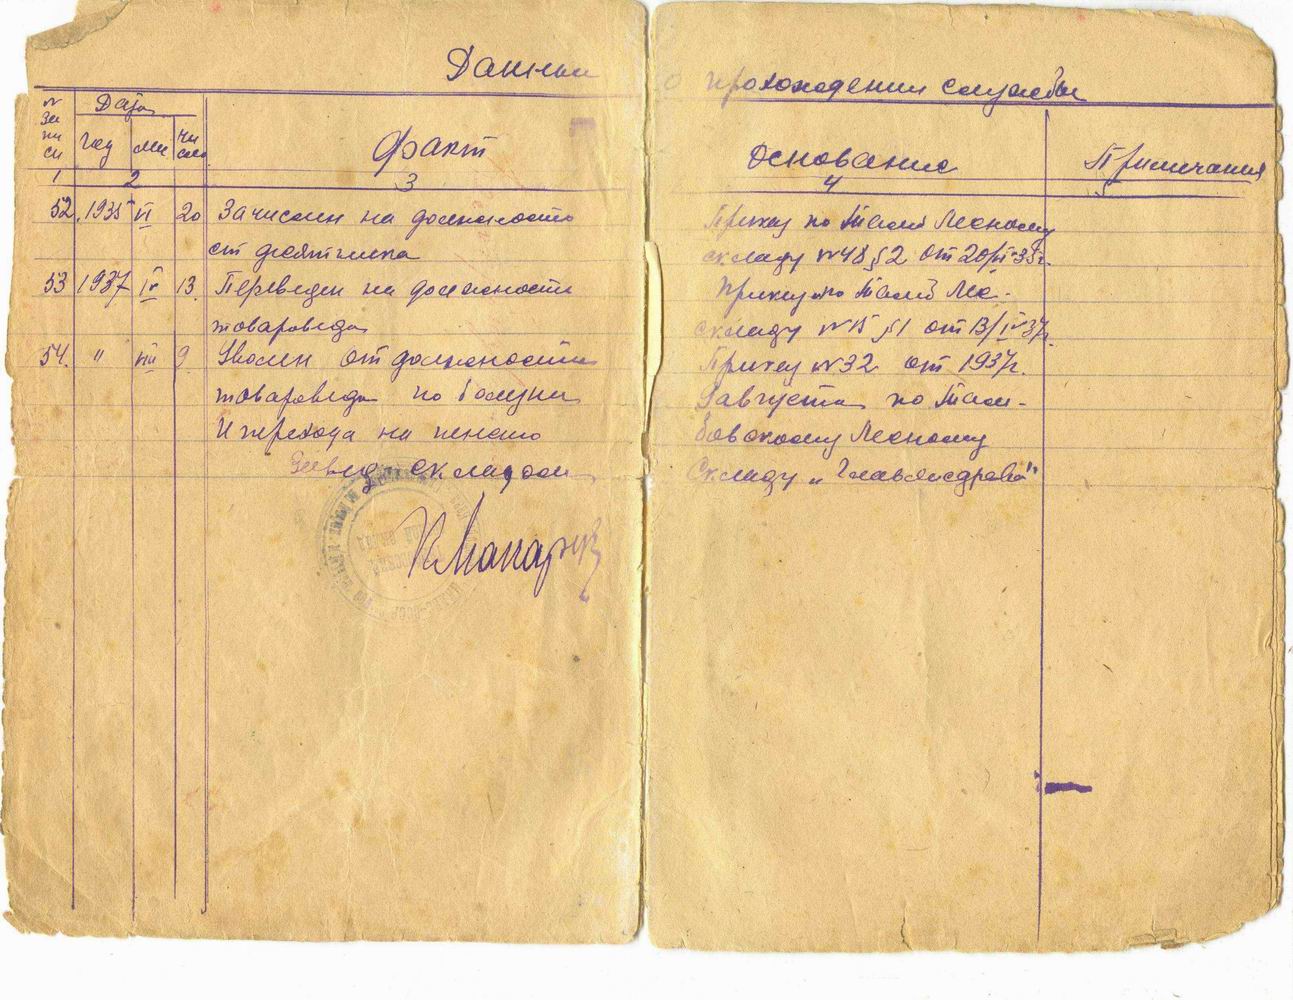 Данные о прохождении службы
№ записи
Дата
год
м-ц
число
Факт
Основание
Примечания
1 2 3 4 5
52. 1935 VI 20 Зачислен на должность
ст десятника
Приказ по Там Лесному
складу №48 §2 от 20/VI-35г.
53 1937 IV 13. Переведен на должность
товароведа
Приказ по Там Лес-
складу №15 §1 от 13/IV 37г.
54. " VIII 9. Уволен от должности
товароведа по болезни
и перехода на пенсию
Приказ №32 от 1937г.
9 августа по Там-
бовскому Лесному
Складу
Завед. складом